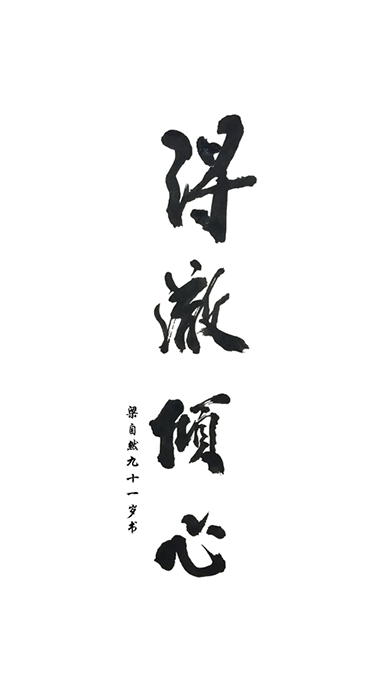 得澈傾心
梁自然九十一岁书